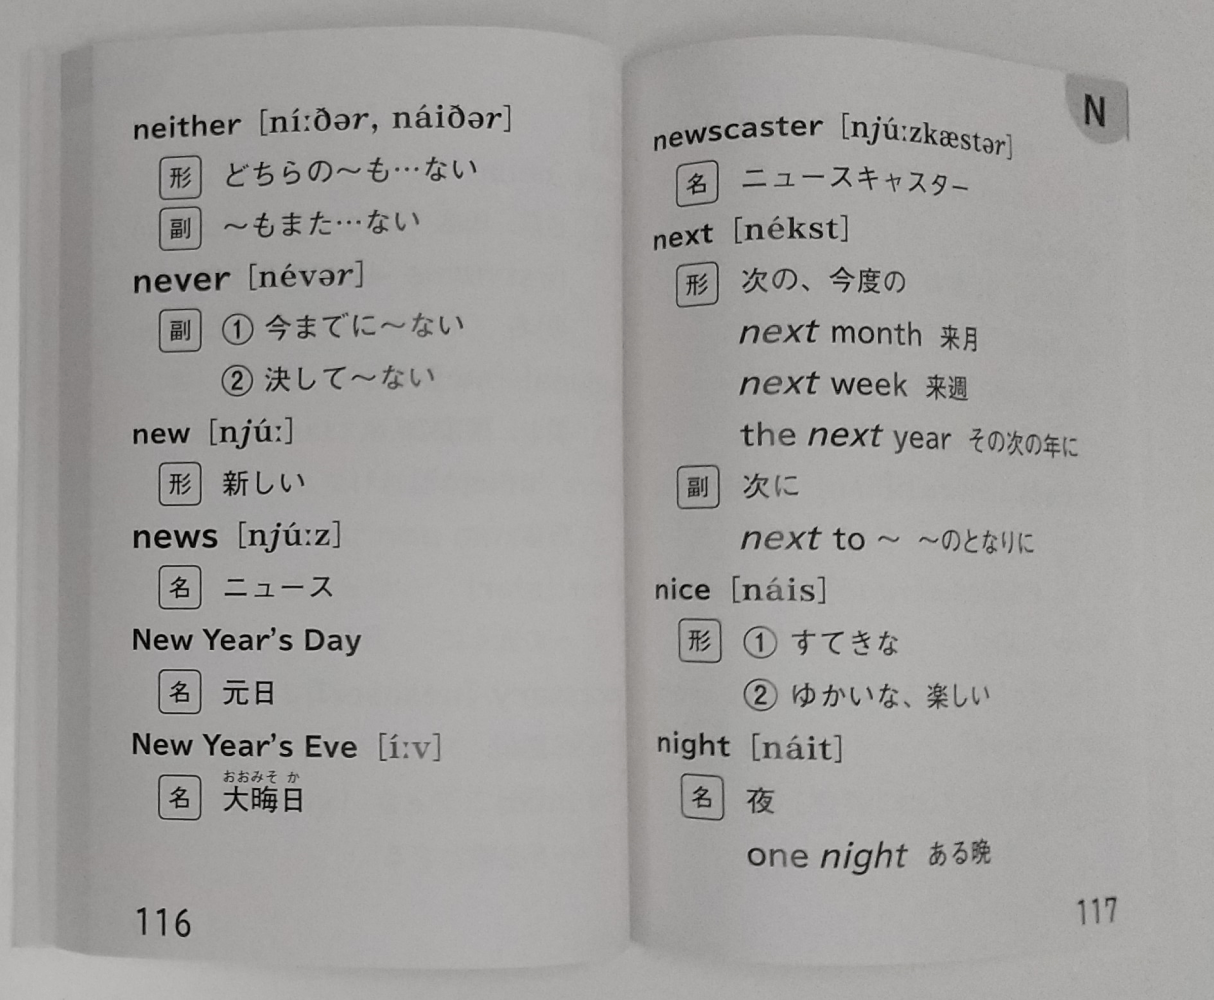 neither [níːðər, náiðər]
形 どちらの～も…ない
副 ～もまた…ない
never [névər]
副 ① 今までに～ない
② 決して～ない
new [njúː]
形 新しい
news [njúːz]
名 ニュース
New Year’s Day
名 元日
New Year’s Eve [íːv]
おおみそ か
名 大晦日
116
N
newscaster [njúːzkæstər]
名 ニュースキャスター
next [nékst]
形 次の、今度の
next month 来月
next week 来週
the next year その次の年に
副 次に
next to ～ ～のとなりに
nice [náis]
形 ① すてきな
② ゆかいな、楽しい
night [náit]
名 夜
one night ある晩
117